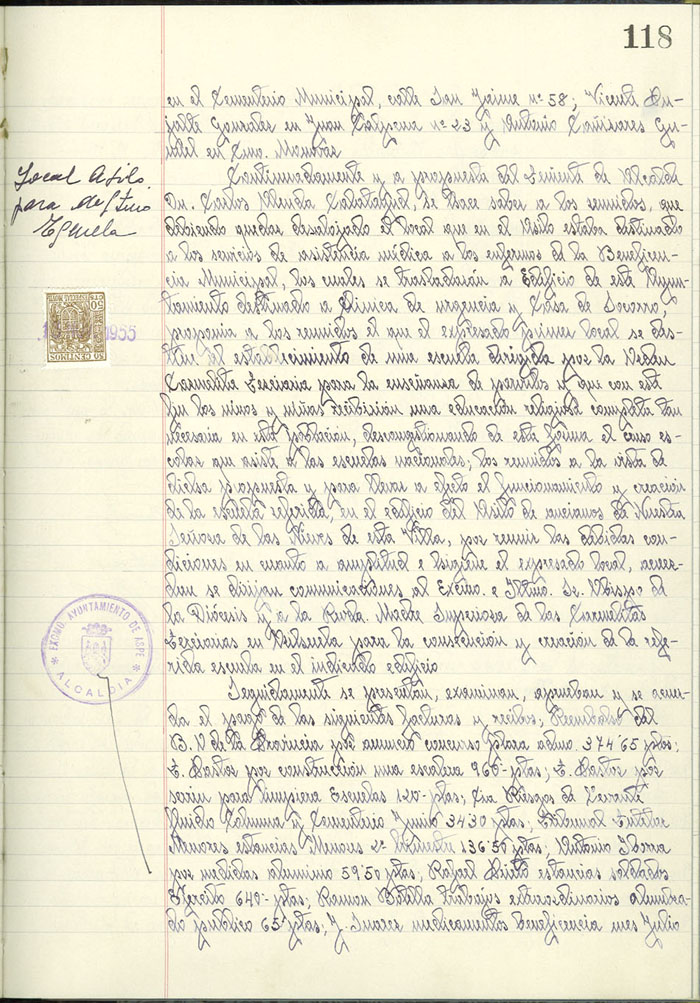 118
en el Cementerio Municipal, calle San Jaime nº 58; Vicente
Gonzalez en Juan nº 23 y Antonio Cañizares
en Cno. Monovar
Local Asilo
para destino
Escuela
Continuadamente y a propuesta del Teniente de Alcalde
Dn. Carlos Calatayud, se hace saber a los reunidos, que
debiendo quedar desalojado el local que en el Asilo estaba destinado
a los servicios de asistencia médica a los enfermos de la Beneficen-
cia Municipal, los cuales se trasladarán a Edificio de este Ayun-
tamiento destinado a Clinica de urgencia y Casa de Socorro;
proponia a los reunidos el que el expresado primer local se des-
tine al establecimiento de una escuela dirigida por la Orden
Carmelita Terciaria para la enseñanza de parvulos y que con este
fin los niños y niñas recibirian una educación religiosa completa tan
necesaria en esta población, descongestionando de esta forma el censo es-
colar que asiste a las escuelas nacionales; los reunidos a la vista de
dicha propuesta y para llevar a efecto el funcionamiento y creación
de la escuela referida, en el edificio del Asilo de ancianos de Nuestra
Señora de las Nieves de esta Villa, por reunir las debidas con-
diciones en cuanto a amplitud e higiene el expresado local, acuer-
dan se dirijan comunicaciones al Excmo. e Iltmo. Sr. Obispo de
la Diócesis y a la Rvda. Madre Superiora de las Carmelitas
Terciarias en Orihuela para la consecución y creación de la refe-
rida escuela en el indicado edificio
Seguidamente se presentan, examinan, aprueban y se acuer-
da el pago de las siguientes facturas y recibos; Reembolso del
B. O de la Provincia por anuncio concurso plaza admo. 374'65 ptas;
E. Pastor por construcción una escalera 960- ptas; E. Pastor por
serrin para limpieza Escuelas 120- ptas; Cia Riegos de Levante
fluido Columna y Cementerio Junio 34'30 ptas; Tribunal Tutelar
Menores estancias Menores 2º trimestre 136'50 ptas; Antonio Iborra
por medidas aluminio 59'50 ptas; Rafael Prieto estancias soldados
Ejercito 649'- ptas; Ramon Botella trabajos extraordinarios alumbra-
do publico 65- ptas; J. Suarez medicamentos beneficencia mes Julio
50 CTS
50 CENTIMOS
1955
EXCMO. AYUNTAMIENTO DE ASPE
* ALCALDIA *